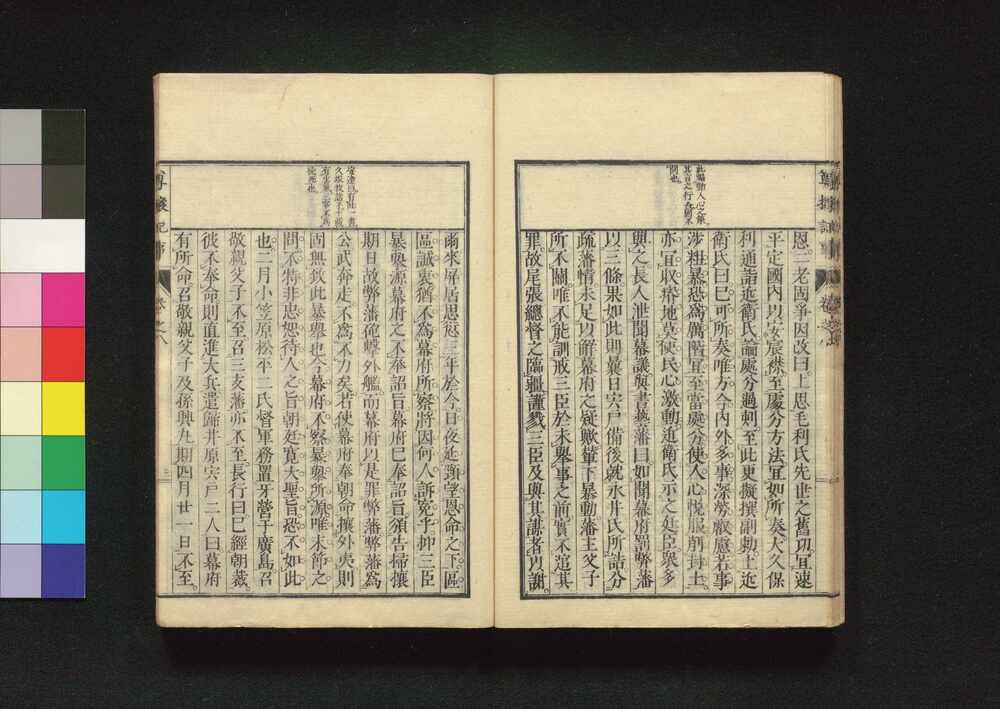 恩二老固爭因改曰上思毛利氏先世之舊功宜速
平定國內以安宸襟至處分方法宜如所奏大久保
利通詣近衛氏論處分過刻至此更擬撰副勅上近
衛氏曰巳可所奏唯方今內外多事深勞宸慮若事
涉粗暴恐爲厲階宜至當處分使人心悅服削封土
亦宜收瘠地莫使民心激動近衛氏示之廷臣衆多
與之長人泄聞幕議與書藝藩曰如聞幕府罰弊藩
以三條果如此則曩日宍戶備後就永井氏所詰分
疏藩情未足以解幕府之疑歟輦下暴動藩主父子
所不關唯不能訓戒三臣於未舉事之前實不逭其
罪故尾張總督之臨疆謹戮三臣及與其謀者以謝
此煽動人心之策
其言之行否則不
問也
爾來屏居思愆三年於今日夜延頸望恩命之下區
區誠衷猶不爲幕府所察將因何人訴寃乎抑三臣
暴舉源幕府之不奉詔旨幕府巳奉詔旨須告掃攘
期日故弊藩砲擊外艦而幕府以是罪弊藩弊藩爲
公武奔走不爲不力矣若使幕府奉朝命攘外夷則
固無敢此暴舉也今幕府不察暴舉所源唯末節之
問不特非思恕待人之旨朝廷寬大聖旨恐不如此
也二月小笠原松平二氏督軍務置牙營于廣島召
敬親父子不至召三支藩亦不至長行曰巳經朝裁
彼不奉命則直進大兵遣歸井原宍戶二人曰幕府
有所命召敬親父子及孫興丸期四月廿一日不至
卷之八